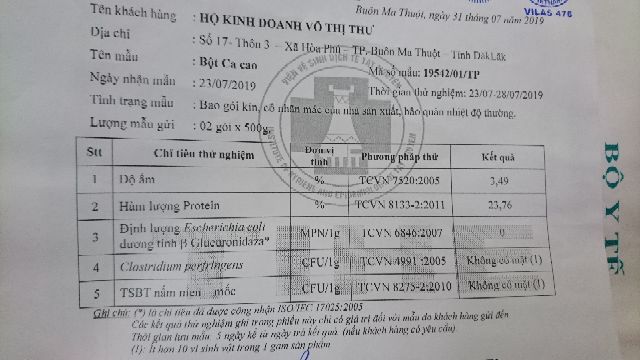 Buôn Ma Thuột, ngày 31 tháng 07 năm 2019
VILAS 476
Tên khách hàng : HỘ KINH DOANH VÕ THỊ THƯ
Địa chỉ : Số 17- Thôn 3 – Xã Hòa Phú – TP. Buôn Ma Thuột – Tỉnh ĐăkLăk
Tên mẫu : Bột Ca cao
Mã số mẫu: 19542/01/TP
Ngày nhận mẫu : 23/07/2019
Thời gian thử nghiệm: 23/07-28/07/2019
Tình trạng mẫu : Bao gói kín, có nhãn mác của nhà sản xuất, bảo quản nhiệt độ thường.
Lượng mẫu gửi : 02 gói x 500g.
VIỆN VỆ SINH DỊCH TỄ TÂY NGUYÊN
INSTITUTE OF HYGIENE AND EPIDEMIOLOGY TAY NGUYEN
Stt Chỉ tiêu thử nghiệm Đơn vị tính Phương pháp thử Kết quả
1 Độ ẩm % TCVN 7520:2005 3,49
2 Hàm lượng Protein % TCVN 8133-2:2011 23,76
3 Định lượng Escherichia coli dương tính β Glucuronidaza* MPN/1g TCVN 6846:2007 0
4 Clostridium perfringens CFU/1g TCVN 4991:2005 Không có mặt (1)
5 TSBT nấm men mốc CFU/1g TCVN 8275-2:2010 Không có mặt (1)
Ghi chú: (*) là chỉ tiêu đã được công nhận ISO/IEC 17025:2005
Các kết quả thử nghiệm ghi trong phiếu này chỉ có giá trị đối với mẫu do khách hàng gửi đến
Thời gian lưu mẫu: 5 ngày kể từ ngày trả kết quả. (nếu khách hàng có yêu cầu)
(1): Ít hơn 10 vi sinh vật trong 1 gam sản phẩm
BỘ Y TẾ